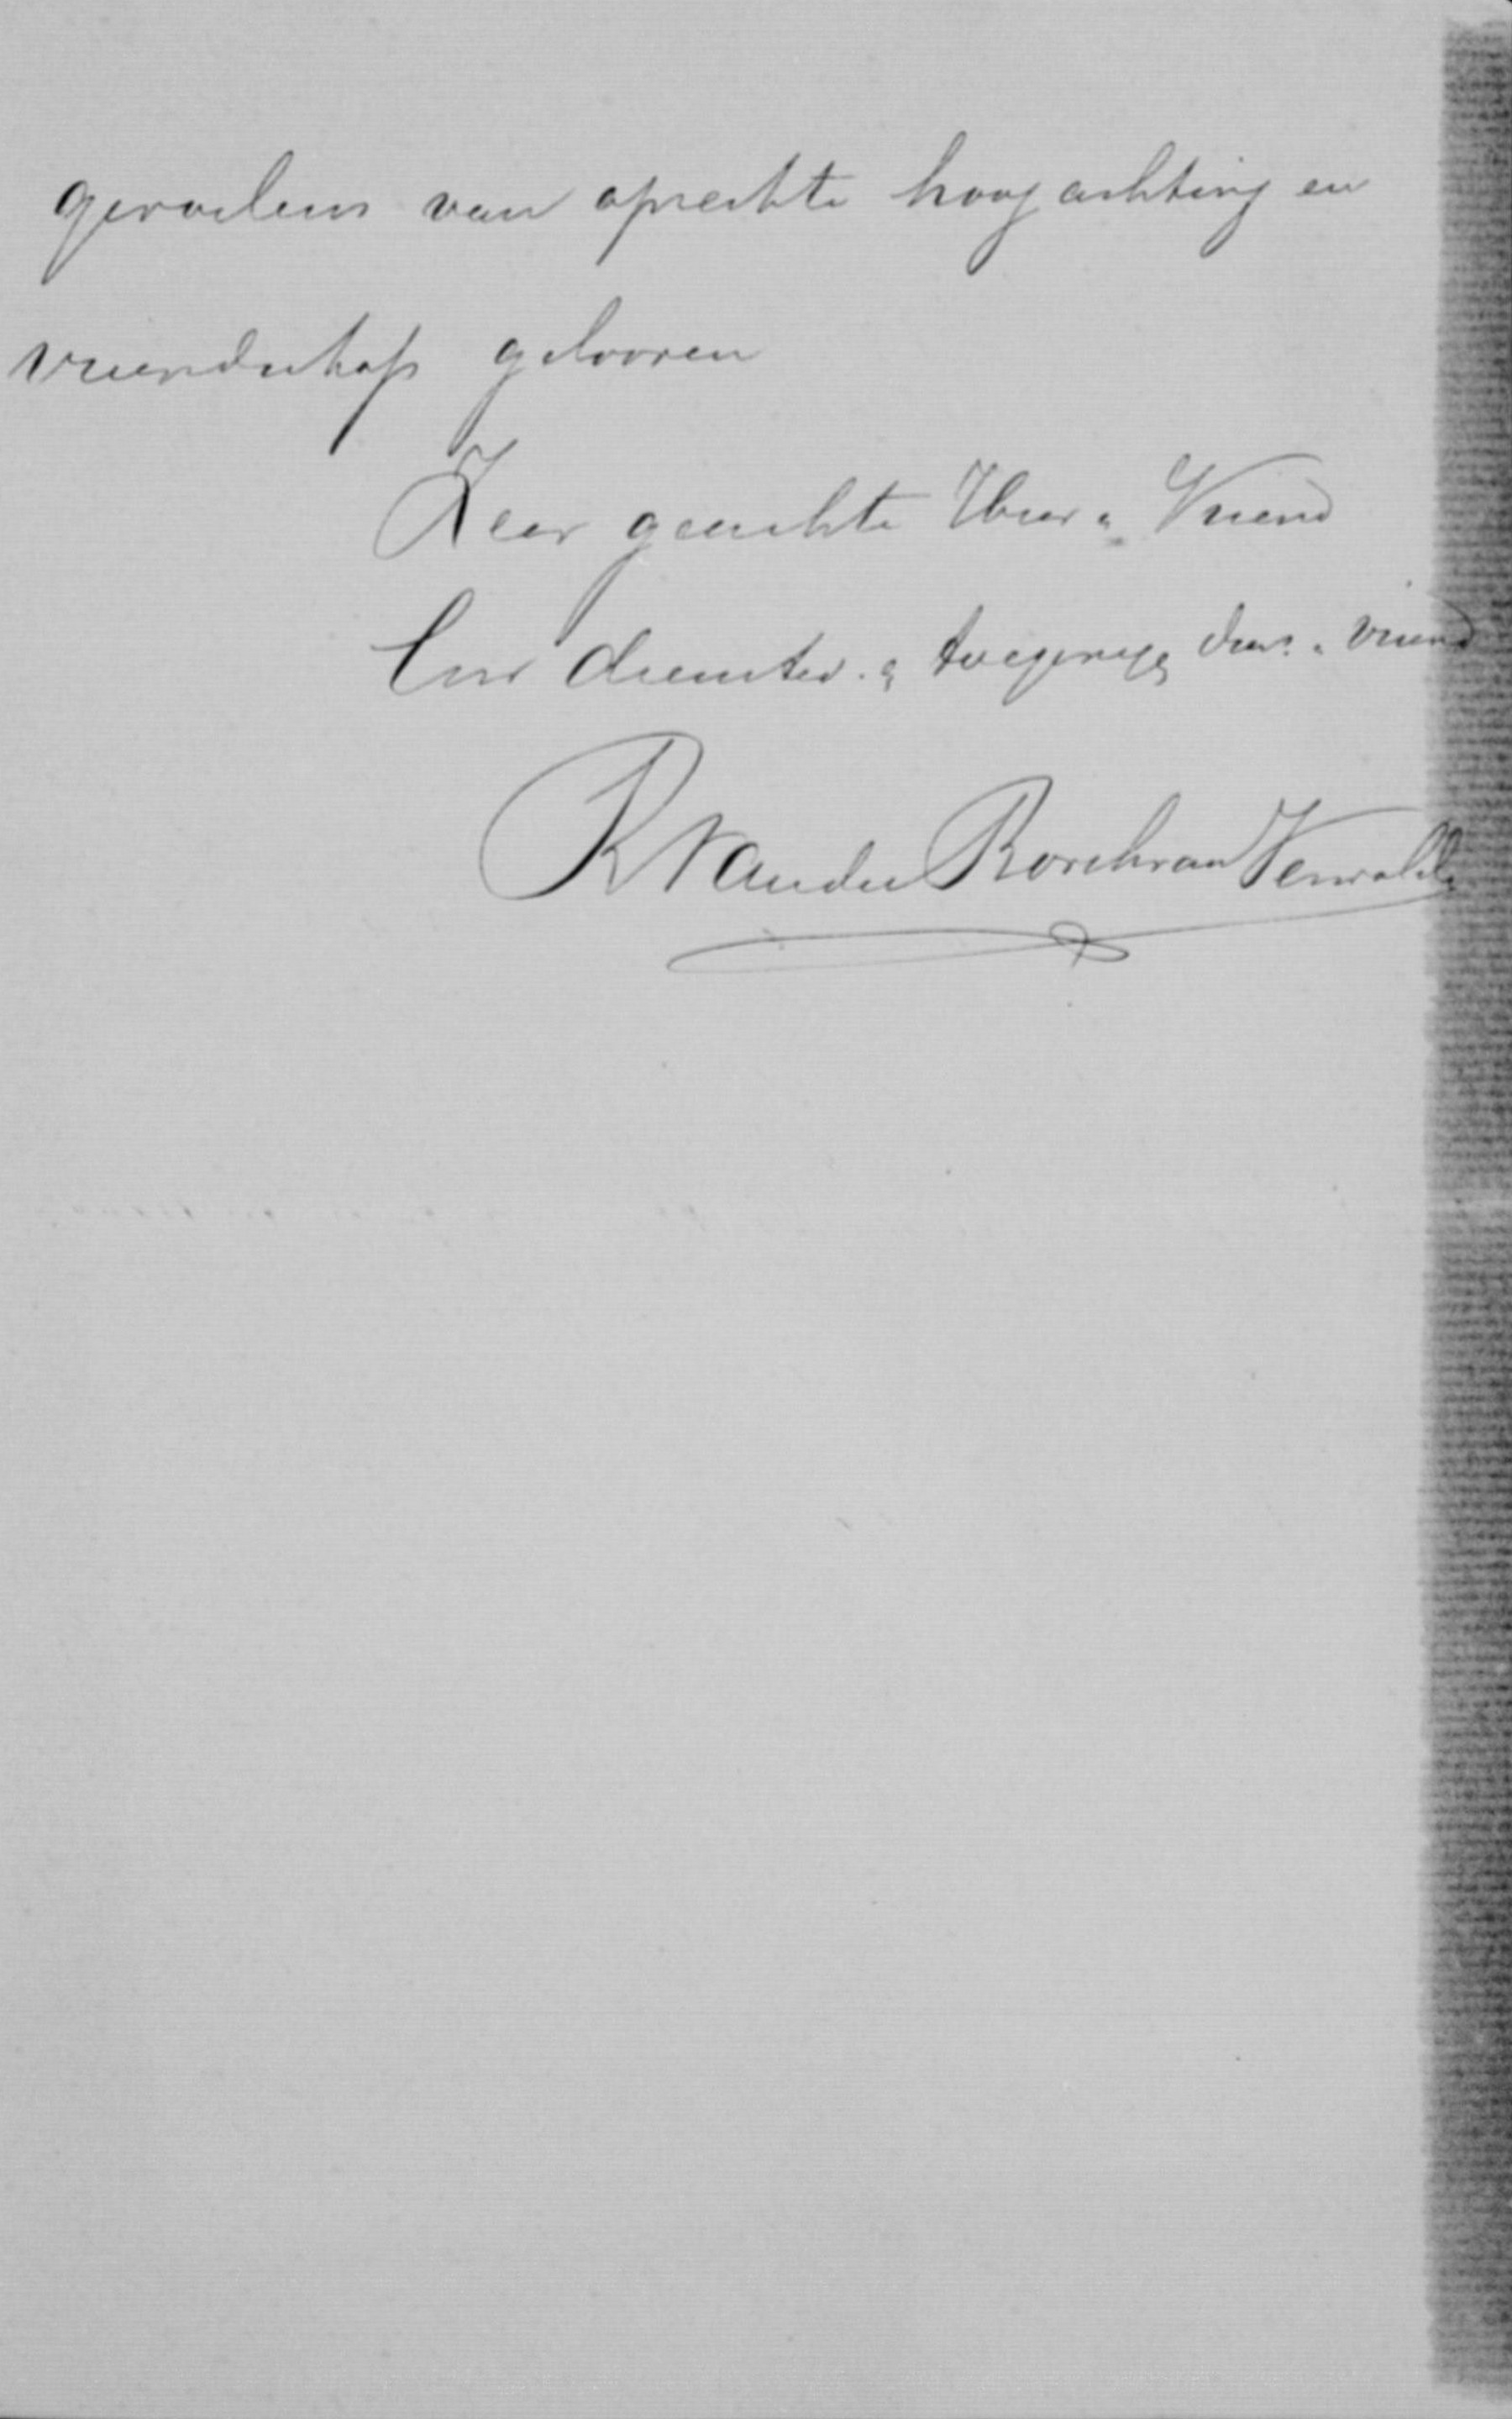 gevoelens van oprechte hoogachting en
vriendschap gelooven
Zeer geachte Heer & Vriend
Uw dienstw. & toegenegen dien. & vriend
R van der Borch van Verwolde